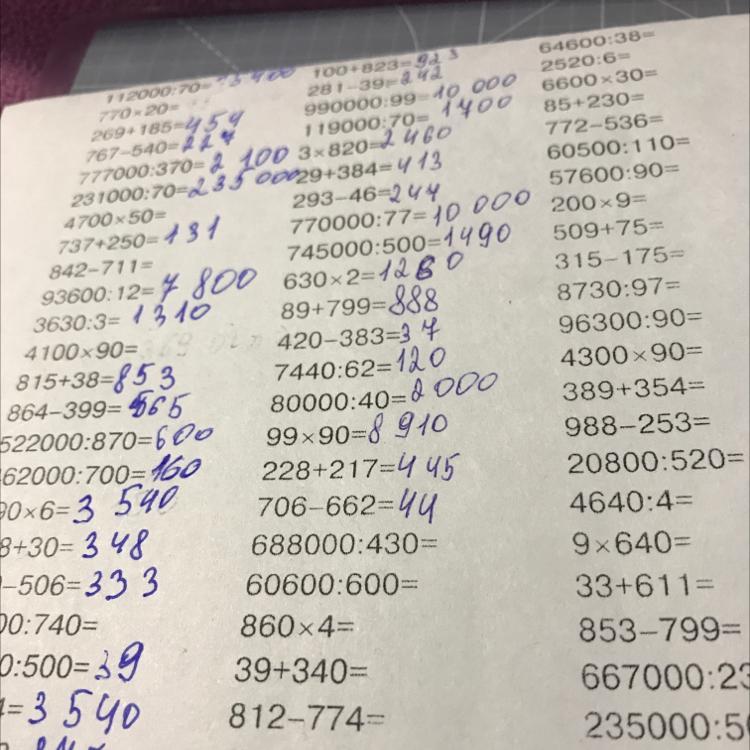 112000:70=
770×20=
269+185=454
767−540=227
777000:370=2 100
231000:70=235 000
4700×50=
737+250=131
842−711=
93600:12=7 800
3630:3=1310
4100×90=
815+38=853
864−399=565
522000:870=600
62000:700=160
90×6=3 540
8+30=348
−506=333
00:740=
0:500=39
=3 540
100+823=923
281−39=242
990000:99=10 000
119000:70=1700
3×820=2460
29+384=413
293−46=247
770000:77=10 000
745000:500=1490
630×2=1260
89+799=888
420−383=37
7440:62=120
80000:40=2000
99×90=8 910
228+217=445
706−662=44
688000:430=
60600:600=
860×4=
39+340=
812−774=
64600:38=
2520:6=
6600×30=
85+230=
772−536=
60500:110=
57600:90=
200×9=
509+75=
315−175=
8730:97=
96300:90=
4300×90=
389+354=
988−253=
20800:520=
4640:4=
9×640=
33+611=
853−799=
667000:23
235000:50